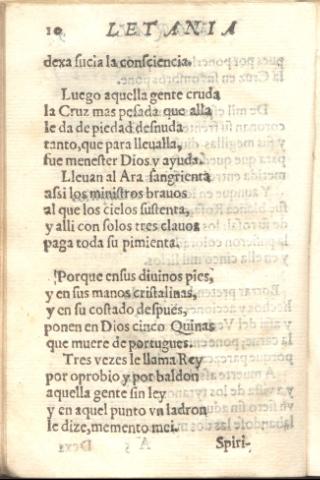 10 LETANIA
dexa sucia la consciencia.
Luego aquella gente cruda
la Cruz mas pesada que alla
le da de piedad desnuda
tanto, que para lleualla,
fue menester Dios y ayuda.
Lleuan al Ara sangrienta
assi los ministros brauos
al que los cielos sustenta,
y alli con solos tres clauos
paga toda su pimienta.
Porque en sus diuinos pies,
y en sus manos cristalinas,
y en su costado despues,
ponen en Dios cinco Quinas
que muere de portugues.
Tres vezes le llama Rey
por oprobio y por baldon
aquella gente sin ley
y en aquel punto vn ladron
le dize, memento mei.
Spiri-